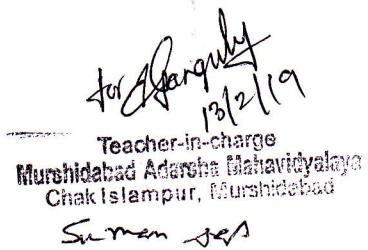 for Ganguly
13/2/19
Teacher-in-charge
Murshidabad Adarsha Mahavidyalaya
Chak Islampur, Murshidabad
Suman